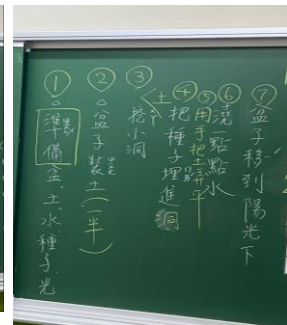 ①準備盆、土、水、種子、光
②盆子裝土(一半)
③挖小洞
④把種子埋進洞
⑤用手把土弄平
⑥澆一點點水
⑦盆子移到陽光下